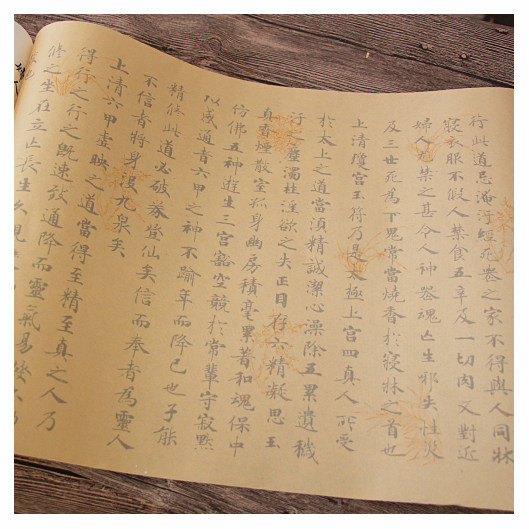 行此道忌淹汙經死喪之家不得與人同牀
寢衣服不假人禁食五辛及一切肉又對近
婦人尤禁之甚令人神喪魂亡生邪失性災
及三世死為下鬼常當燒香於寢牀之首也
上清瓊宮玉符乃是太極上宮四真人所受
於太上之道當須精誠潔心澡除五累遺穢
汙之塵濁杜淫欲之失正目存六精凝思玉
真香煙散室孤身幽房積毫累著和魂保中
仿佛五神遊生三宮豁空競於常輩守寂默
以感通者六甲之神不踰年而降已也子能
精修此道必破券登仙矣信而奉者為靈人
不信者將身沒九泉矣
上清六甲虛映之道當得至精至真之人乃
得行之行之既速致通降而靈氣易
修之坐在立亡長生久視